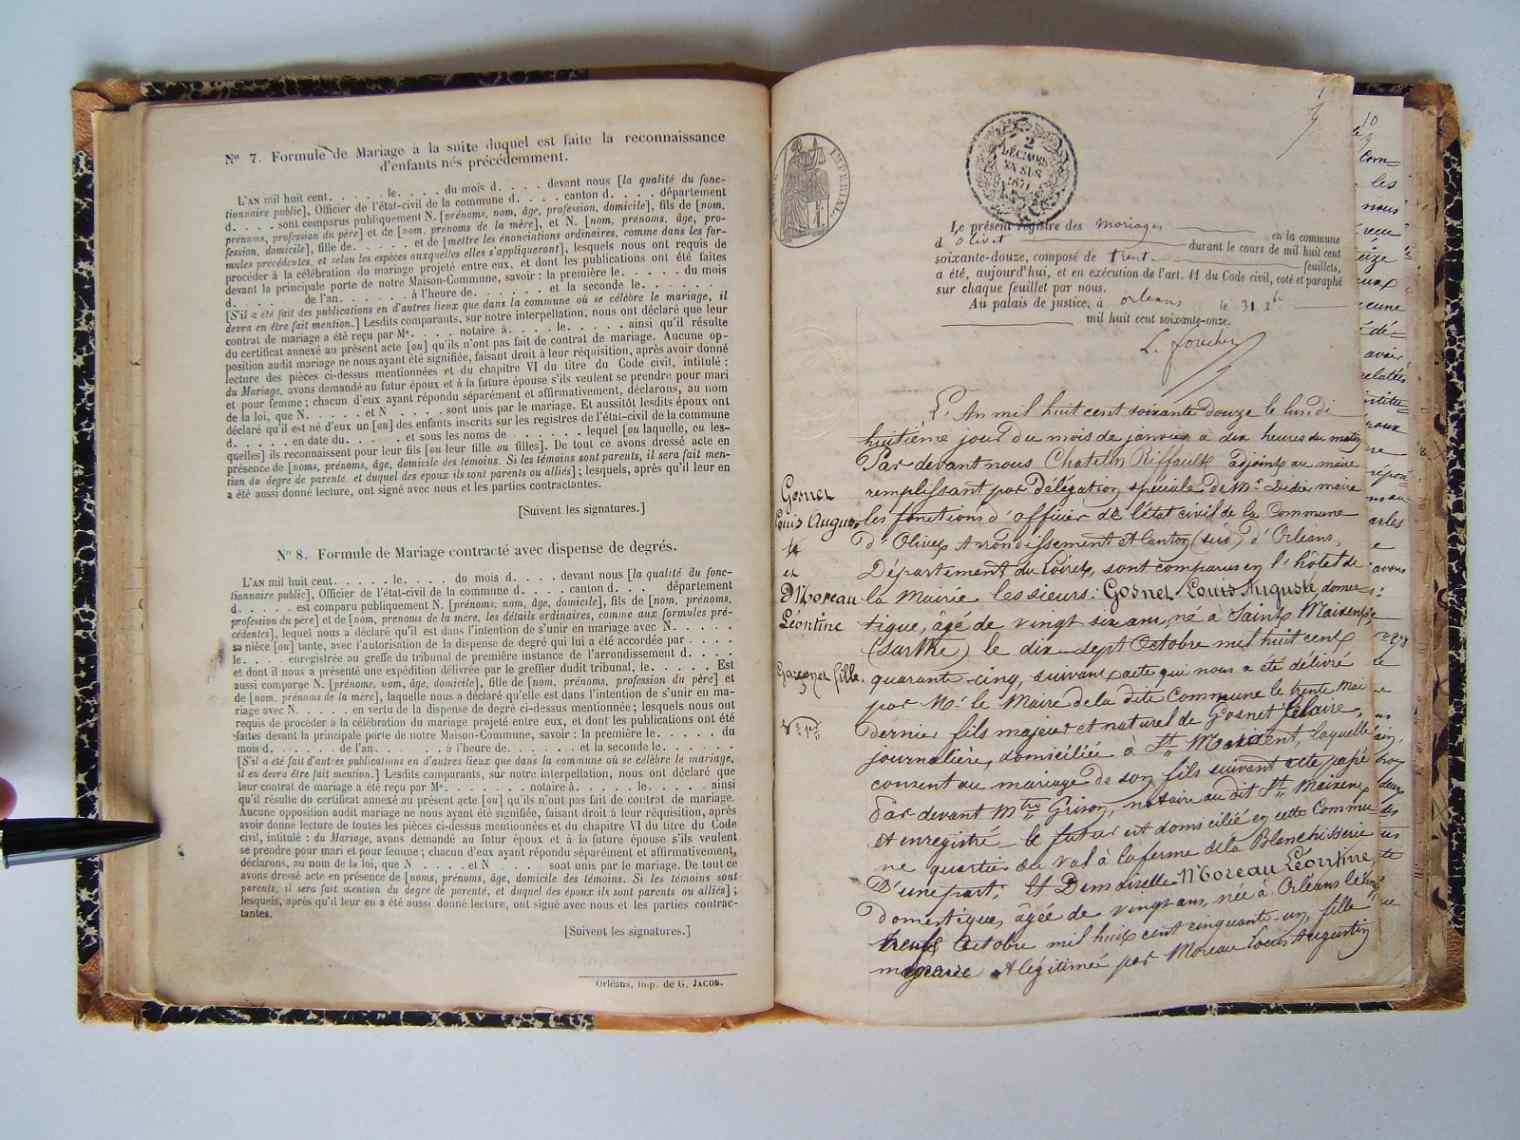 Nº 7. Formule de Mariage à la suite duquel est faite la reconnaissance
d'enfants nés précédemment.
L'AN mil huit cent. . . . . le. . . . du mois d. . . . . devant nous [la qualité du fonc-
tionnaire public], Officier de l'état-civil de la commune d. . . . canton d. . . . département
d. . . . sont comparus publiquement N. [prénoms, nom, âge, profession, domicile], fils de [nom,
prénoms, profession du père] et de [nom, prénoms de la mère], et N. [nom, prénoms, âge, pro-
fession, domicile], fille de. . . . . . et de [mettre les énonciations ordinaires, comme dans les for-
mules précédentes, et selon les espèces auxquelles elles s'appliqueront], lesquels nous ont requis de
procéder à la célébration du mariage projeté entre eux, et dont les publications ont été faites
devant la principale porte de notre Maison-Commune, savoir : la première le. . . . . . du mois
d. . . . . . . . de l'an. . . . . . à l'heure de. . . . . . et la seconde le. . . . . . .
[S'il a été fait des publications en d'autres lieux que dans la commune où se célèbre le mariage, il
devra en être fait mention.] Lesdits comparants, sur notre interpellation, nous ont déclaré que leur
contrat de mariage a été reçu par Me. . . . . notaire à. . . . le. . . . . . ainsi qu'il résulte
du certificat annexé au présent acte [ou] qu'ils n'ont pas fait de contrat de mariage. Aucune op-
position audit mariage ne nous ayant été signifiée, faisant droit à leur réquisition, après avoir donné
lecture des pièces ci-dessus mentionnées et du chapitre VI du titre du Code civil, intitulé :
du Mariage, avons demandé au futur époux et à la future épouse s'ils veulent se prendre pour mari
et pour femme ; chacun d'eux ayant répondu séparément et affirmativement, déclarons, au nom
de la loi, que N. . . . . . et N . . . . . . sont unis par le mariage. Et aussitôt lesdits époux ont
déclaré qu'il est né d'eux un [ou] des enfants inscrits sur les registres de l'état-civil de la commune
d. . . . . . en date du. . . . . et sous les noms de . . . . . . . lequel [ou laquelle, ou les-
quelles] ils reconnaissent pour leur fils [ou leur fille ou filles]. De tout ce avons dressé acte en
présence de [noms, prénoms, âge, domicile des témoins. Si les témoins sont parents, il sera fait men-
tion du degré de parenté, et duquel des époux ils sont parents ou alliés] ; lesquels, après qu'il leur en
a été aussi donné lecture, ont signé avec nous et les parties contractantes.
[Suivent les signatures.]
Nº 8. Formule de Mariage contracté avec dispense de degrés.
L'AN mil huit cent. . . . . . le. . . . du mois d. . . . . devant nous [la qualité du fonc-
tionnaire public], Officier de l'état-civil de la commune d. . . . canton d. . . . département
d. . . . . est comparu publiquement N. [prénoms, nom, âge, domicile], fils de [nom, prénoms,
profession du père] et de [nom, prénoms de la mère, les détails ordinaires, comme aux formules pré-
cédentes], lequel nous a déclaré qu'il est dans l'intention de s'unir en mariage avec N. . . . . .
sa nièce [ou] tante, avec l'autorisation de la dispense de degré qui lui a été accordée par . . . .
le. . . . enregistrée au greffe du tribunal de première instance de l'arrondissement d. . . . .
et dont il nous a présenté une expédition délivrée par le greffier dudit tribunal, le. . . . . . Est
aussi comparue N. [prénoms, nom, âge, domicile], fille de [nom, prénoms, profession du père] et
de [nom, prénoms de la mère], laquelle nous a déclaré qu'elle est dans l'intention de s'unir en ma-
riage avec N. . . . . . en vertu de la dispense de degré ci-dessus mentionnée ; lesquels nous ont
requis de procéder à la célébration du mariage projeté entre eux, et dont les publications ont été
faites devant la principale porte de notre Maison-Commune, savoir : la première le. . . . . . du
mois d. . . . . . . de l'an. . . . . à l'heure de. . . . . . et la seconde le. . . . . . .
[S'il a été fait d'autres publications en d'autres lieux que dans la commune où se célèbre le mariage,
il en devra être fait mention.] Lesdits comparants, sur notre interpellation, nous ont déclaré que
leur contrat de mariage a été reçu par Me. . . . . . . . notaire à. . . . . . le. . . . . . ainsi
qu'il résulte du certificat annexé au présent acte [ou] qu'ils n'ont pas fait de contrat de mariage.
Aucune opposition audit mariage ne nous ayant été signifiée, faisant droit à leur réquisition, après
avoir donné lecture de toutes les pièces ci-dessus mentionnées et du chapitre VI du titre du Code
civil, intitulé : du Mariage, avons demandé au futur époux et à la future épouse s'ils veulent
se prendre pour mari et pour femme ; chacun d'eux ayant répondu séparément et affirmativement,
déclarons, au nom de la loi, que N . . . . . et N . . . . . sont unis par le mariage. De tout ce
avons dressé acte en présence de [noms, prénoms, âge, domicile des témoins. Si les témoins sont
parents, il sera fait mention du degré de parenté, et duquel des époux ils sont parents ou alliés] ;
lesquels, après qu'il leur en a été aussi donné lecture, ont signé avec nous et les parties contrac-
tantes.
[Suivent les signatures.]
Orléans, imp. de G. JACOB.
IMPERIAL
2
DÉCIMES
EN SUS
1871
Le présent registre des mariages en la commune
d olivet durant le cours de mil huit cent
soixante-douze, composé de trente feuillets,
a été, aujourd'hui, et en exécution de l'art. 41 du Code civil, coté et paraphé
sur chaque feuillet par nous.
Au palais de justice, à orléans le 31 Xbre
mil huit cent soixante-onze.
Gosnet
Louis Auguste
et
Moreau
Léontine
L'An mil huit cent soixante douze le lundi
huitième jour du mois de janvier à dix heures du matin
Par devant nous Chatelin Riffault adjoint au maire
remplissant par délégation spéciale de Mr Didier maire
les fonctions d'officier de l'état civil de la Commune
d'Olivet Arrondissement et Canton (sud) d'Orléans,
Département du Loiret, sont comparus en l'hôtel de
la Mairie les sieurs : Gosnet Louis Auguste domes-
tique, âgé de vingt six ans, né à Saint Maixent
(Sarthe) le dix-sept Octobre mil huit cent
quarante-cinq, suivant acte qui nous a été délivré
par Mr le Maire de la dite Commune le trente Mai
dernier fils majeur et naturel de Gosnet
journalière, domiciliée à St Maixent, laquelle
consent au mariage de son fils suivant acte passé
Par devant Mtre Grison, notaire au dit St Maixent
et enregistré le futur est domicilié en cette Commu-
ne quartier du Val à la ferme de la Blanchisserie
D'une part ; Et Demoiselle Moreau Léontine
domestique, âgée de vingt ans, née à Orléans le vingt
neuf Octobre mil huit cent cinquante-un, fille
mineure et légitime par Moreau Louis Augustin